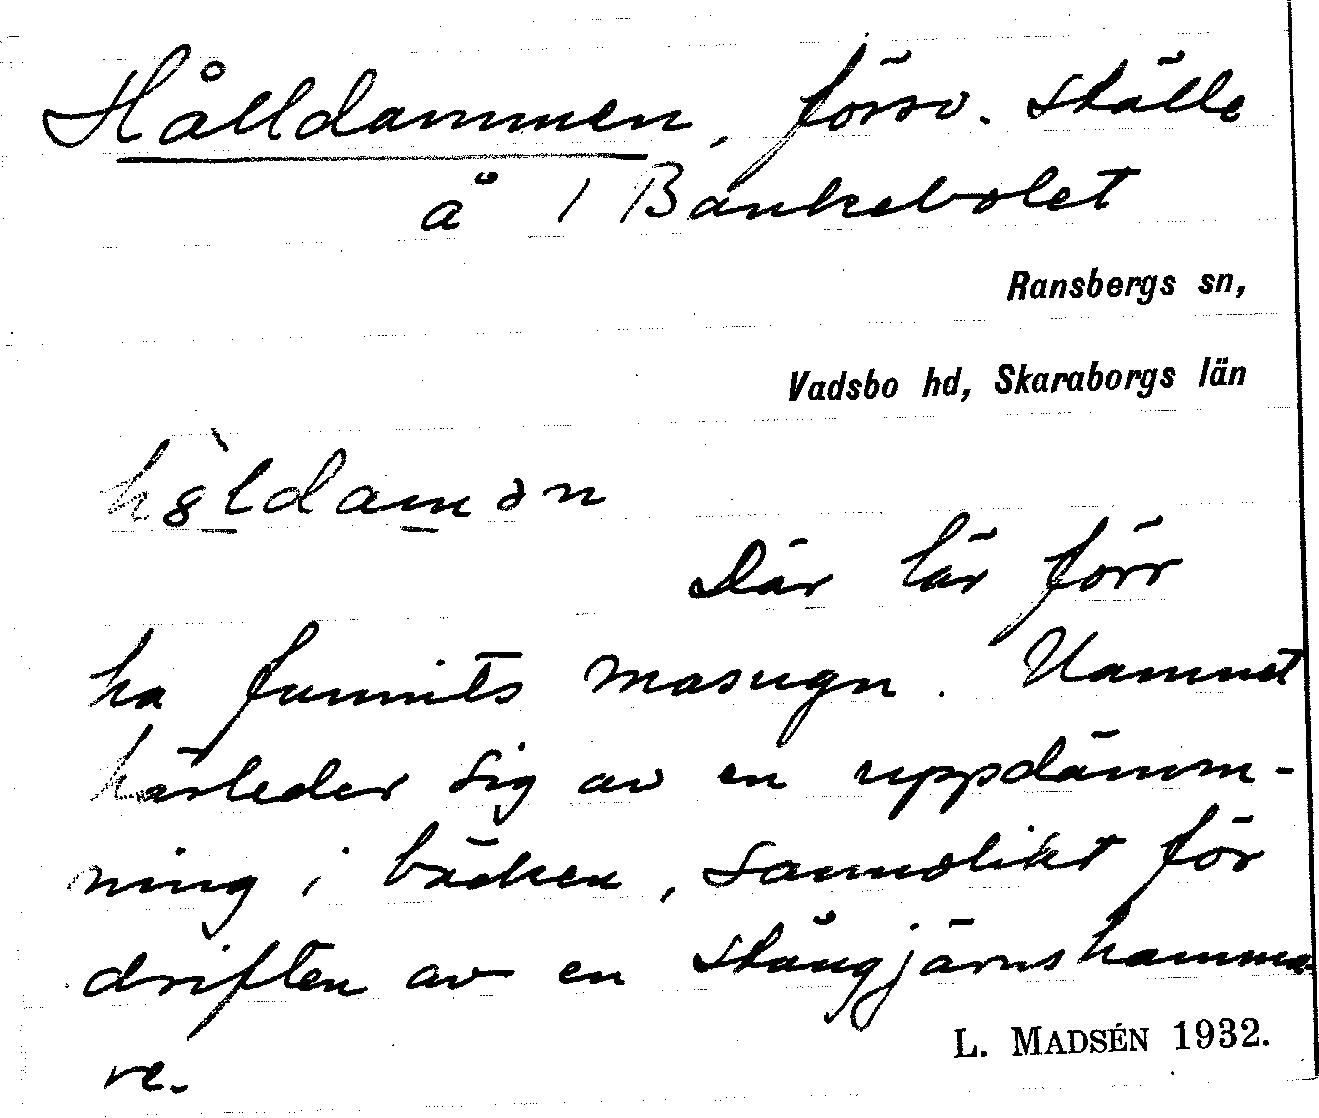 Hålldammen, försv. ställe
å 1 Bankebolet
Ransbergs sn,
Vadsbo hd, Skaraborgs län
Där lär förr
ha funnits masugn. Namnet
härleder sig av en uppdämm-
ning i bäcken, sannolikt för
driften av en stångjärnshamma-
re.
L. MADSÉN 1932.